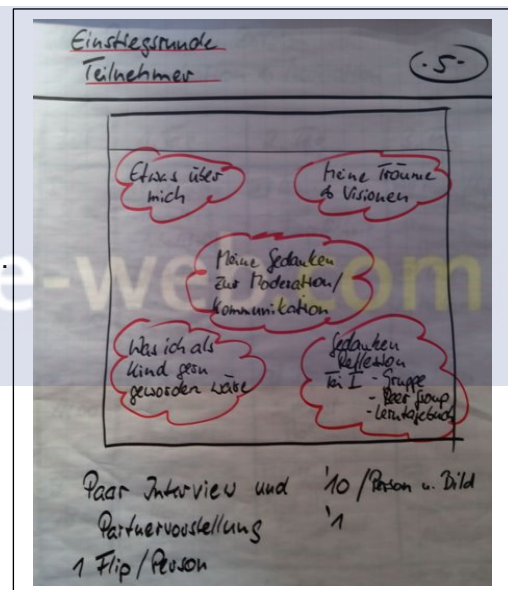 Einstiegsrunde
Teilnehmer
-5-
Etwas über
mich
Meine Träume
& Visionen
Meine Gedanken
zur Moderation/
Kommunikation
Was ich als
Kind gern
geworden wäre
Gedanken
Reflexion
Tei I - Gruppe
- Peer Group
- Lerntagebuch
Paar Interview und '10 / Person u. Bild
Partnervorstellung '1
1 Flip / Person
e-web.com